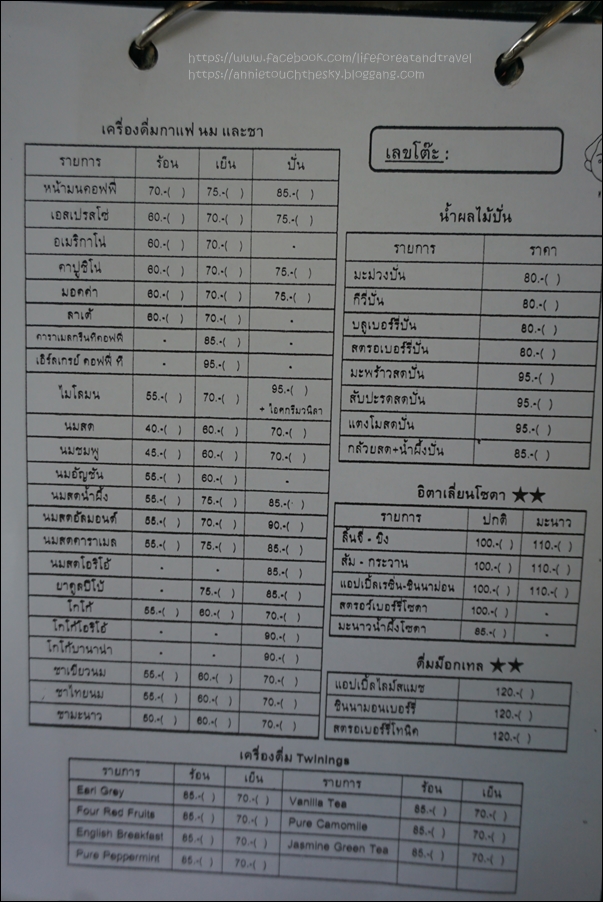 https://www.facebook.com/lifeforeatandtravel
https://annietouchthesky.bloggang.com
เครื่องดื่มกาแฟ นม และชา
รายการ ร้อน เย็น ปั่น
หน้ามนคอฟฟี่ 70.-( ) 75.-( ) 85.-( )
เอสเปรสโซ่ 60.-( ) 70.-( ) 75.-( )
อเมริกาโน่ 60.-( ) 70.-( ) -
คาปูชิโน่ 60.-( ) 70.-( ) 75.-( )
มอคค่า 60.-( ) 70.-( ) 75.-( )
ลาเต้ 60.-( ) 70.-( ) -
คาราเมลกรีนทีคอฟฟี่ - 85.-( ) -
เอิร์ลเกรย์ คอฟฟี่ ที - 95.-( ) -
ไมโลมน 55.-( ) 70.-( ) 95.-( )
+ ไอศกรีมวนิลา
นมสด 40.-( ) 60.-( ) 70.-( )
นมชมพู 45.-( ) 60.-( ) 70.-( )
นมอัญชัน 55.-( ) 60.-( ) -
นมสดน้ำผึ้ง 55.-( ) 75.-( ) 85.-( )
นมสดอัลมอนต์ 55.-( ) 70.-( ) 90.-( )
นมสดคาราเมล 55.-( ) 75.-( ) 85.-( )
นมสดโอริโอ้ - - 85.-( )
ยาคูลปีโป้ - 75.-( ) 85.-( )
โกโก้ 55.-( ) 60.-( ) 70.-( )
โกโก้โอริโอ้ - - 90.-( )
โกโก้บานาน่า - - 90.-( )
ชาเขียวนม 55.-( ) 60.-( ) 70.-( )
ชาไทยนม 55.-( ) 60.-( ) 70.-( )
ชามะนาว 50.-( ) 60.-( ) 70.-( )
เลขโต๊ะ :
น้ำผลไม้ปั่น
รายการ ราคา
มะม่วงปั่น 80.-( )
กีวีปั่น 80.-( )
บลูเบอร์รี่ปั่น 80.-( )
สตรอเบอร์รี่ปั่น 80.-( )
มะพร้าวสดปั่น 95.-( )
สับปะรดสดปั่น 95.-( )
แตงโมสดปั่น 95.-( )
กล้วยสด+น้ำผึ้งปั่น 85.-( )
อิตาเลี่ยนโซดา ★★
รายการ ปกติ มะนาว
ลิ้นจี่ - ขิง 100.-( ) 110.-( )
ส้ม - กระวาน 100.-( ) 110.-( )
แอปเปิ้ลเรซิ่น-ซินนาม่อน 100.-( ) 110.-( )
สตรอว์เบอร์รี่โซดา 100.-( ) -
มะนาวน้ำผึ้งโซดา 85.-( ) -
ดื่มม็อกเทล ★★
แอปเปิ้ลไลม์สแมช 120.-( )
ซินนามอนเบอร์รี่ 120.-( )
สตรอเบอร์รี่โทนิค 120.-( )
เครื่องดื่ม Twinings
รายการ ร้อน เย็น รายการ ร้อน เย็น
Earl Grey 65.-( ) 70.-( ) Vanilla Tea 65.-( ) 70.-( )
Four Red Fruits 65.-( ) 70.-( ) Pure Camomile 65.-( ) 70.-( )
English Breakfast 65.-( ) 70.-( ) Jasmine Green Tea 65.-( ) 70.-( )
Pure Peppermint 65.-( ) 70.-( )